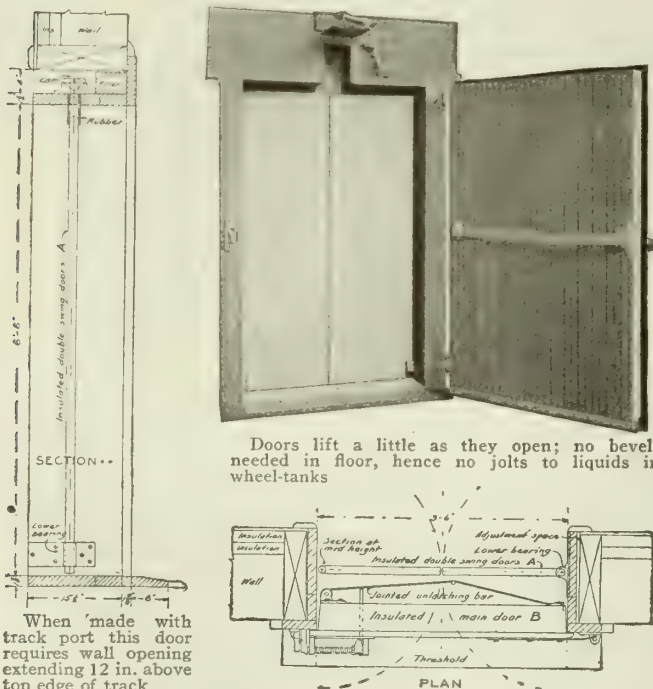 Ins
Wall
Rubber
Insulated double swing doors A
6'-6"
SECTION
Lower
bearing
When made with
track port this door
requires wall opening
extending 12 in. above
top edge of track
Doors lift a little as they open; no bevel
needed in floor, hence no jolts to liquids in
wheel-tanks
3'-6"
Insulation
Insulation
Wall
Section at
mid height
Adjustment space
Lower bearing
Insulated double swing doors A
Jointed unlatching bar
Insulated main door B
Threshold
PLAN